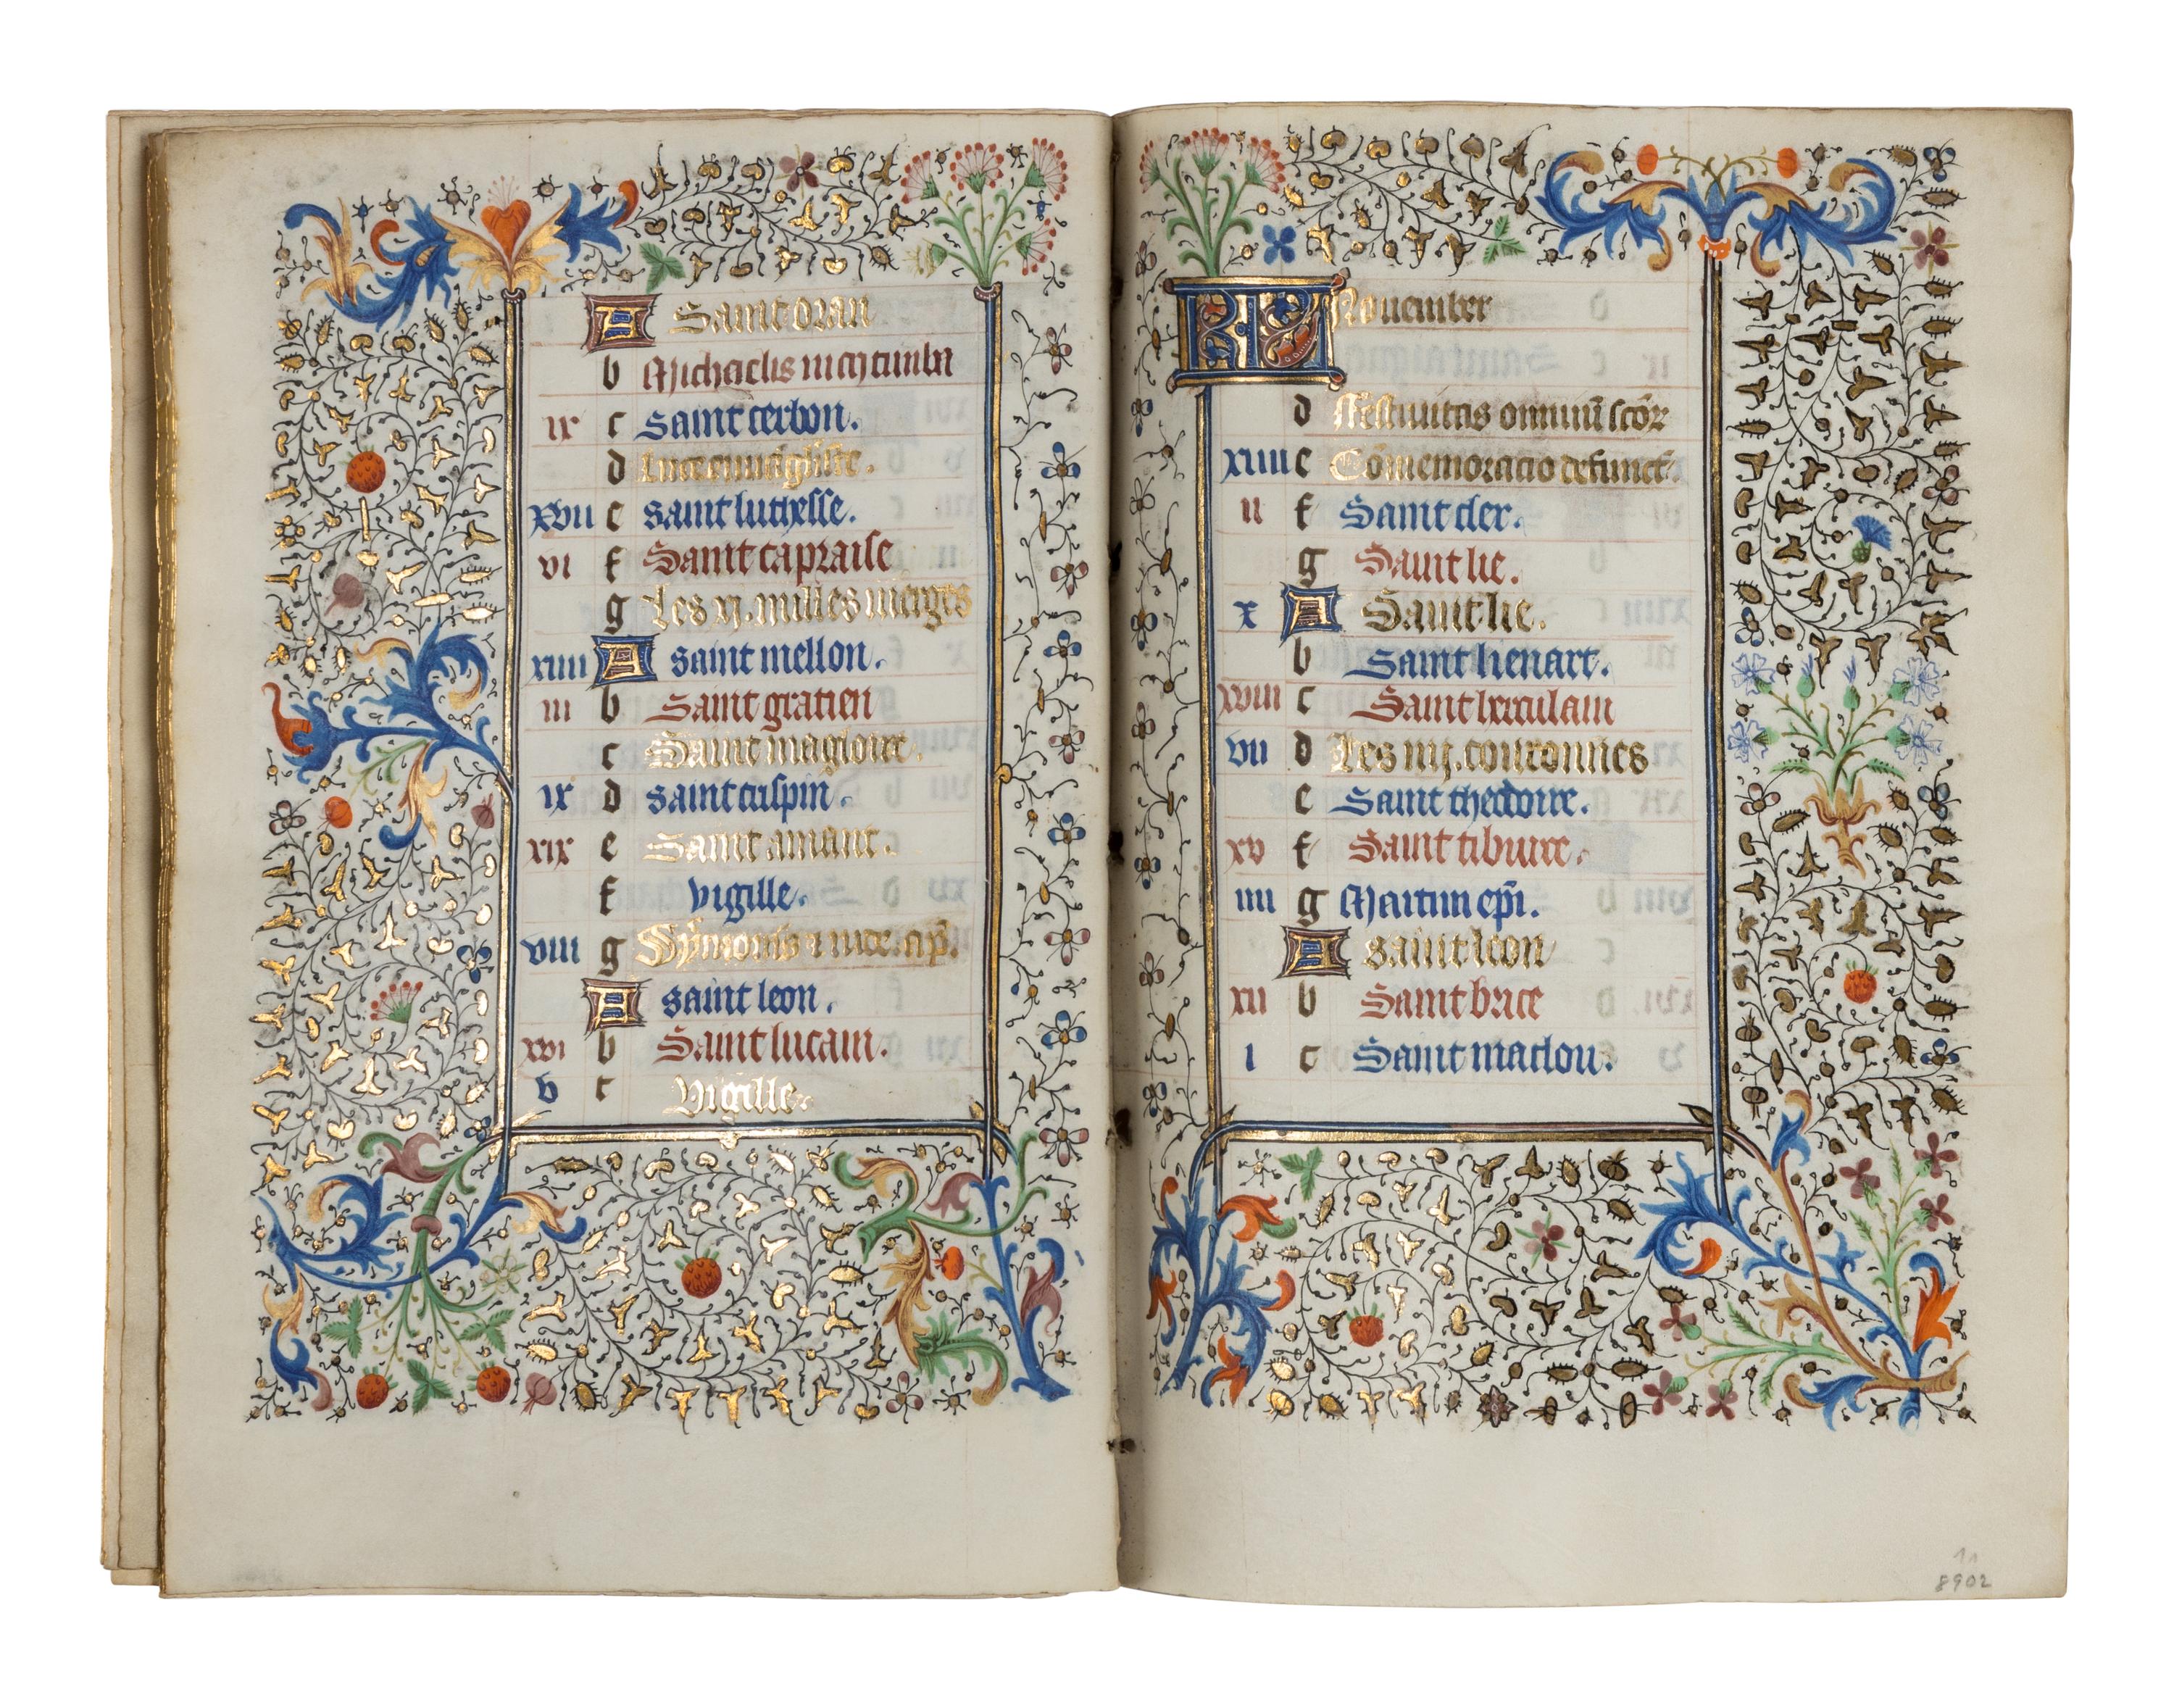 A Saint oran
b Michaelis in monte tumba
ix c saint cerbon.
d Luce euuāgliste.
xvii e saint luthesse.
vi f Saint capraise
g Les xj. milles vierges
xiiii A saint mellon.
iii b Saint gratien
c Saint magloire.
ix d saint crispin.
xix e Saint amant.
f vigille.
viii g Symonis & iude. ap̄.
A saint leon.
xvi b Saint lucain.
v c Vigille.
KL Nouember
d Festiuitas omniū scōr
xiiii e Cōmemoracio defunct̄.
ii f Saint cler.
g Saint lie.
x A Saint lie.
b Saint lienart.
xviii c Saint
vii d Les iiij. couronnes
e Saint theodoire.
xv f Saint tiburce.
iiii g Martini ep̄i.
A saint leon
xii b Saint brice
i c Saint maclou.
11
8902